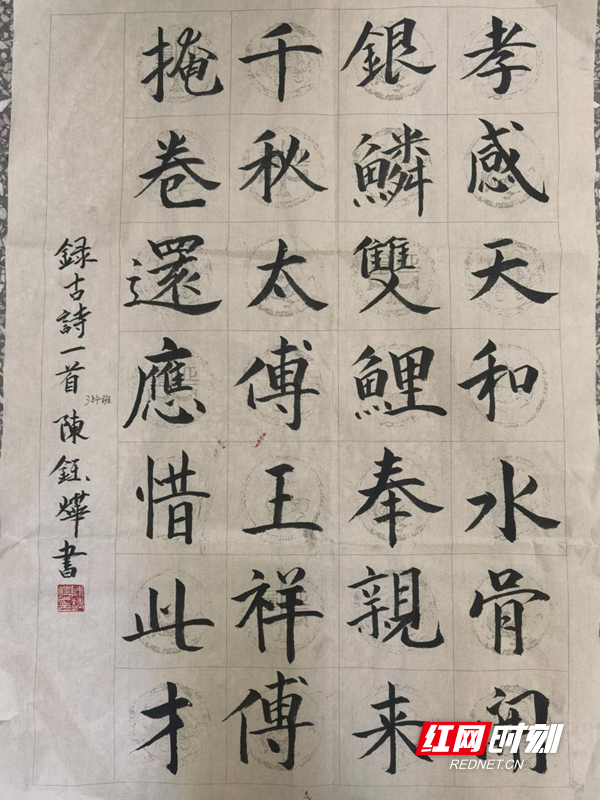 孝感天和水骨開
銀鱗雙鯉奉親来
千秋太傅王祥傅
掩卷還應惜此才
録古詩一首 陳鈺燁書
324班
红网时刻
REDNET.CN